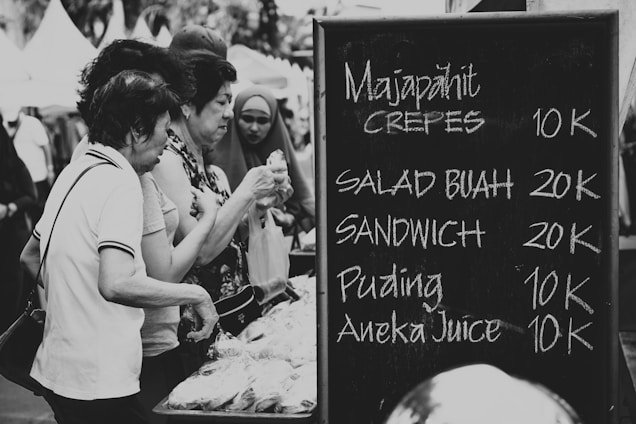 Majapahit
CREPES 10K
SALAD BUAH 20K
SANDWICH 20K
Puding 10K
Aneka Juice 10K